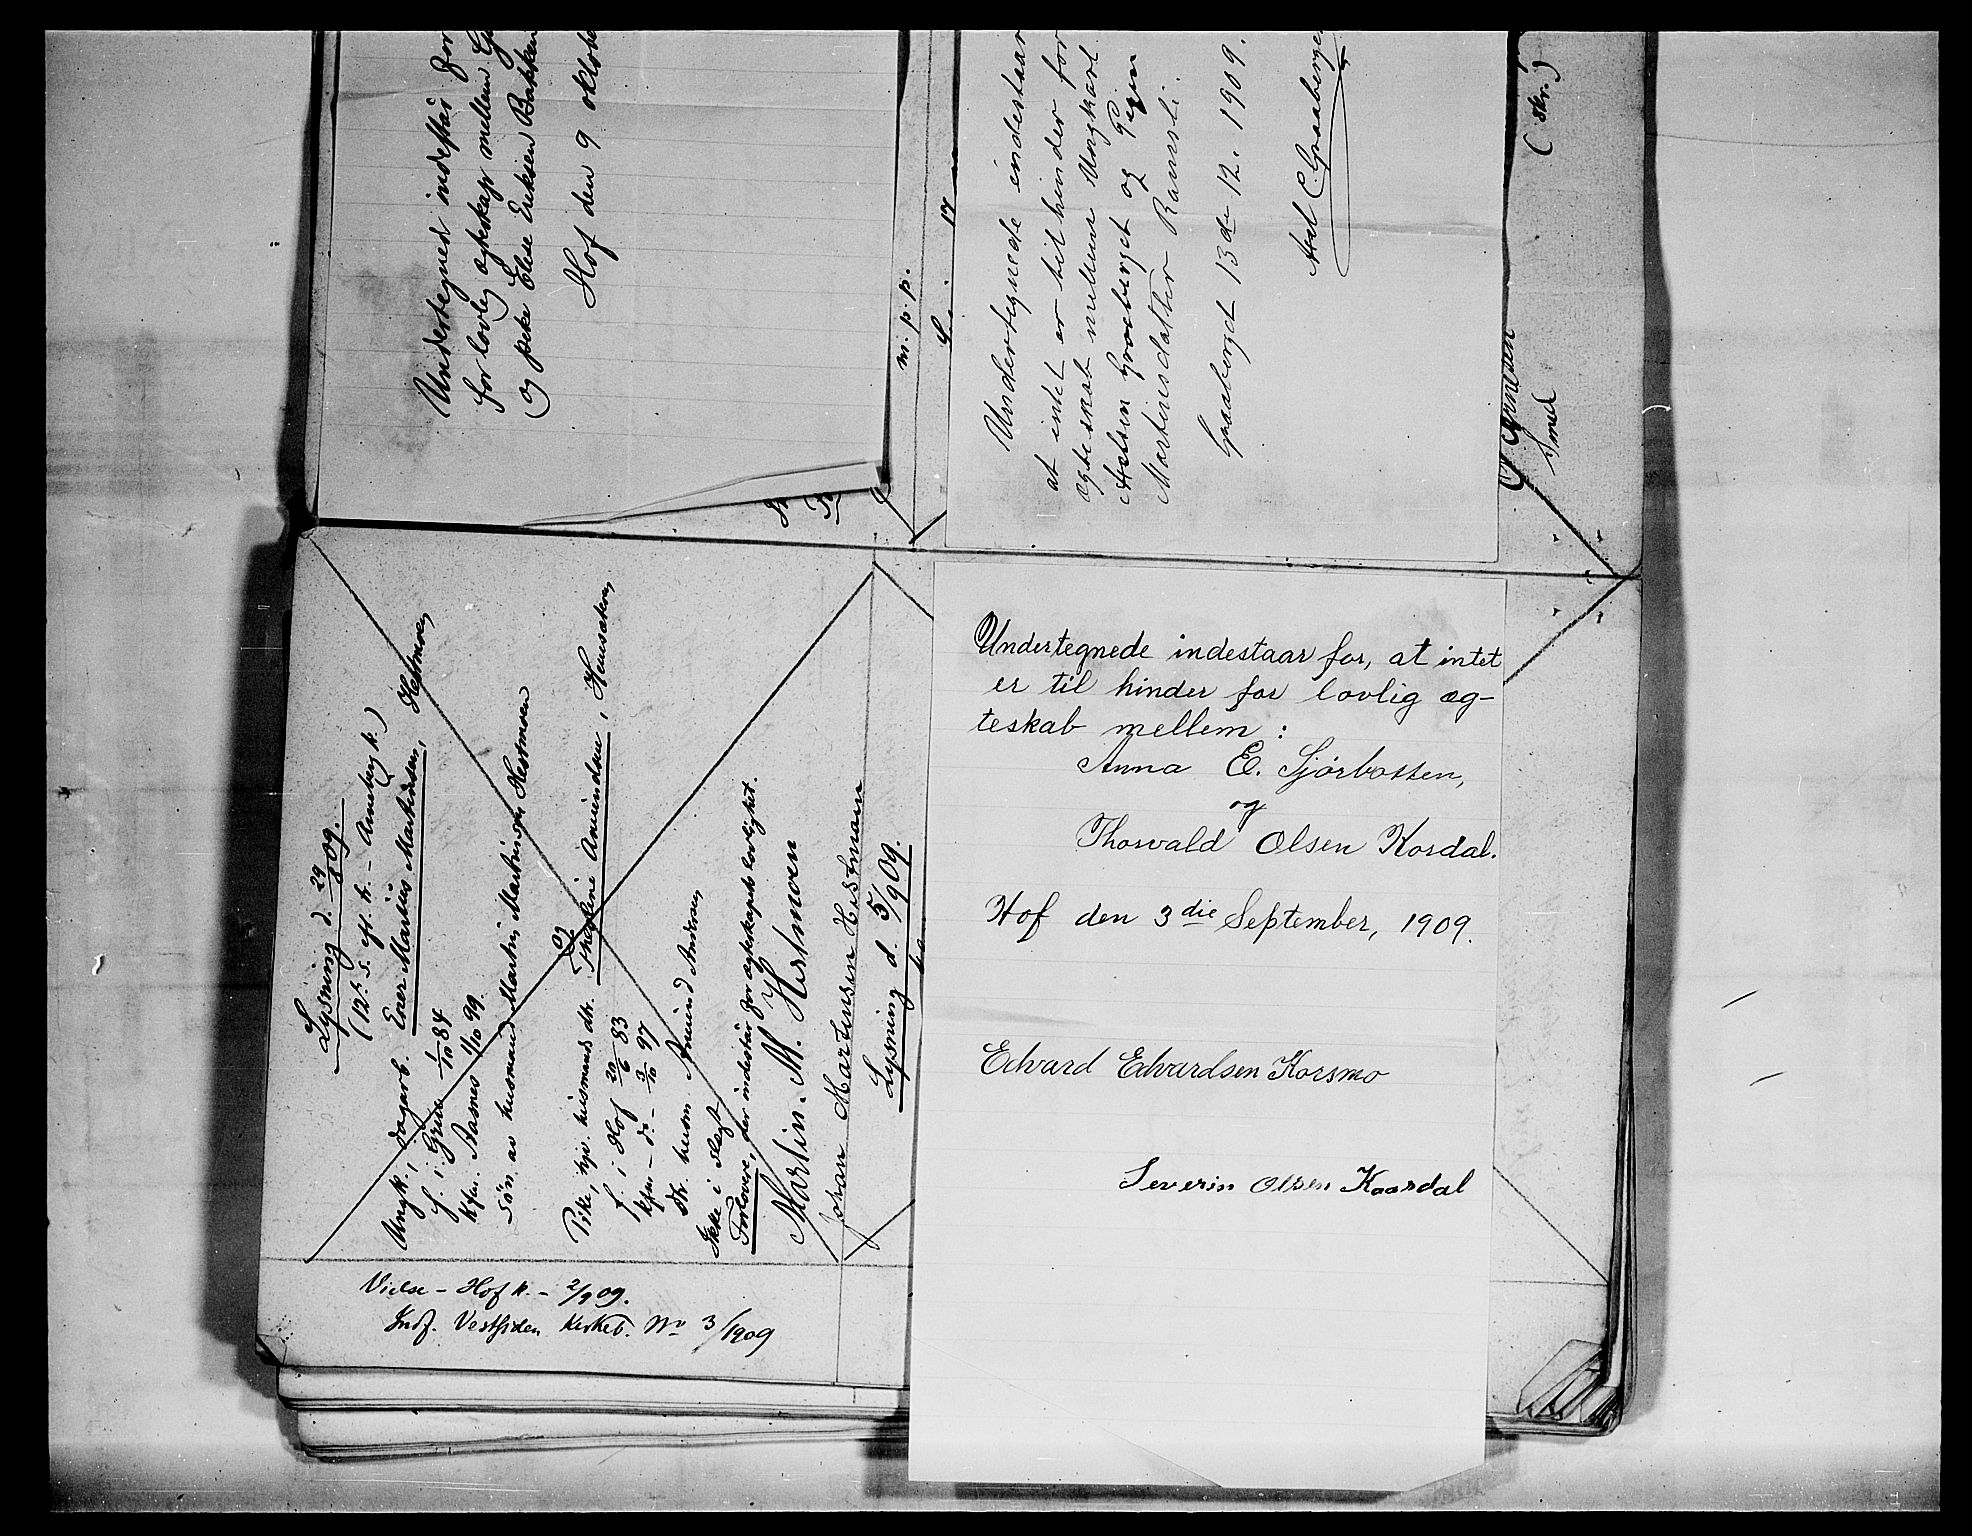 Undertegned indestår for
for lovlig ægteskap mellem
og pike Elise Eriksen Bakken
Hof den 9 oktobe
m. p. p.
17
Undertegnede indestaar
at intet er til hinder for
ægteskab mellem Ungkarl
Axelsen Graaberget og Pigen
Martinesdatter Ramsli.
Graaberget 13de 12. 1909.
Axl C. Graaberge
(skr.)
Smed
Lysning d. 29/8 09.
(12te S. eft. tr. – Arneberg k.)
Ungk., dagarb. Einar Marius Martinsen, Hestmoen
f. i Grue 1/10 84
kfm. Aasnes 1/10 99.
Søn av husmand Martin Martinsen Hestmoen
og
Pike, hj. husmands dtr. Thea Arnendsen, Hensaasen
f. i Hof 20/6 83
kfm – do – 3/10 97
dtr. husm. Amund Andersen
Ikke i slegt
Forlovere, der indestår for ægteskapets lovlighet.
Martin. M. Hestmoen
Johan Martinsen Hestmoen
Lysning d. 5/9 09.
Vielse – Hof k. – 2/9 09.
Indf. Vestsiden Kirkeb. No 3/1909
Undertegnede indestaar for, at intet
er til hinder for lovlig æg-
teskab mellem :
Anna E. Sjørbotten,
og
Thorvald Olsen Kordal.
Hof den 3die September, 1909.
Edvard Edvardsen Korsmo
Severin Olsen Kaardal